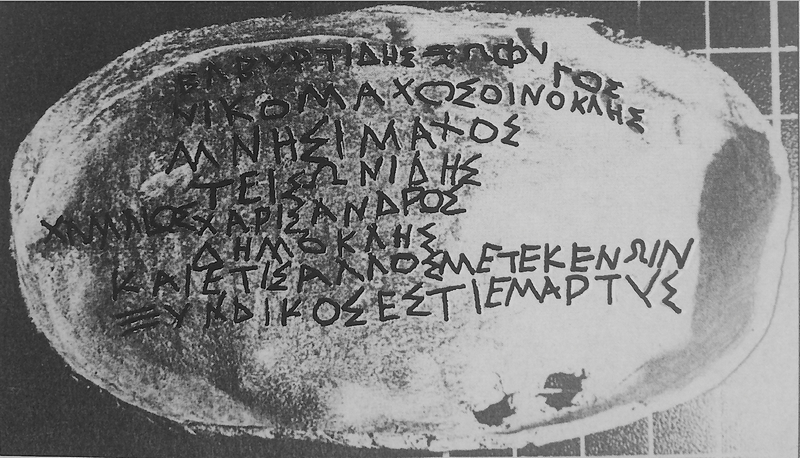 ΒΑΒΥΡΤΙΔΗΣ ΞΩΦΥ
ΓΟΣ
ΝΙΚΟΜΑΧΟΣΟΙΝΟΚΛΗΣ
ΜΝΗΣΙΜΑΧΟΣ
ΤΕΙΣΩΝΙΔΗΣ
ΧΑΜΑΙΟΣΧΑΡΙΣΑΝΔΡΟΣ
ΔΗΜΟΚΛΗΣ
ΚΑΙΕΤΙΣΑΛΛΟΣΜΕΤΕΚΕΝΩΙΝ
ΞΥΝΔΙΚΟΣΕΣΤΙΕΜΑΡΤΥΣ